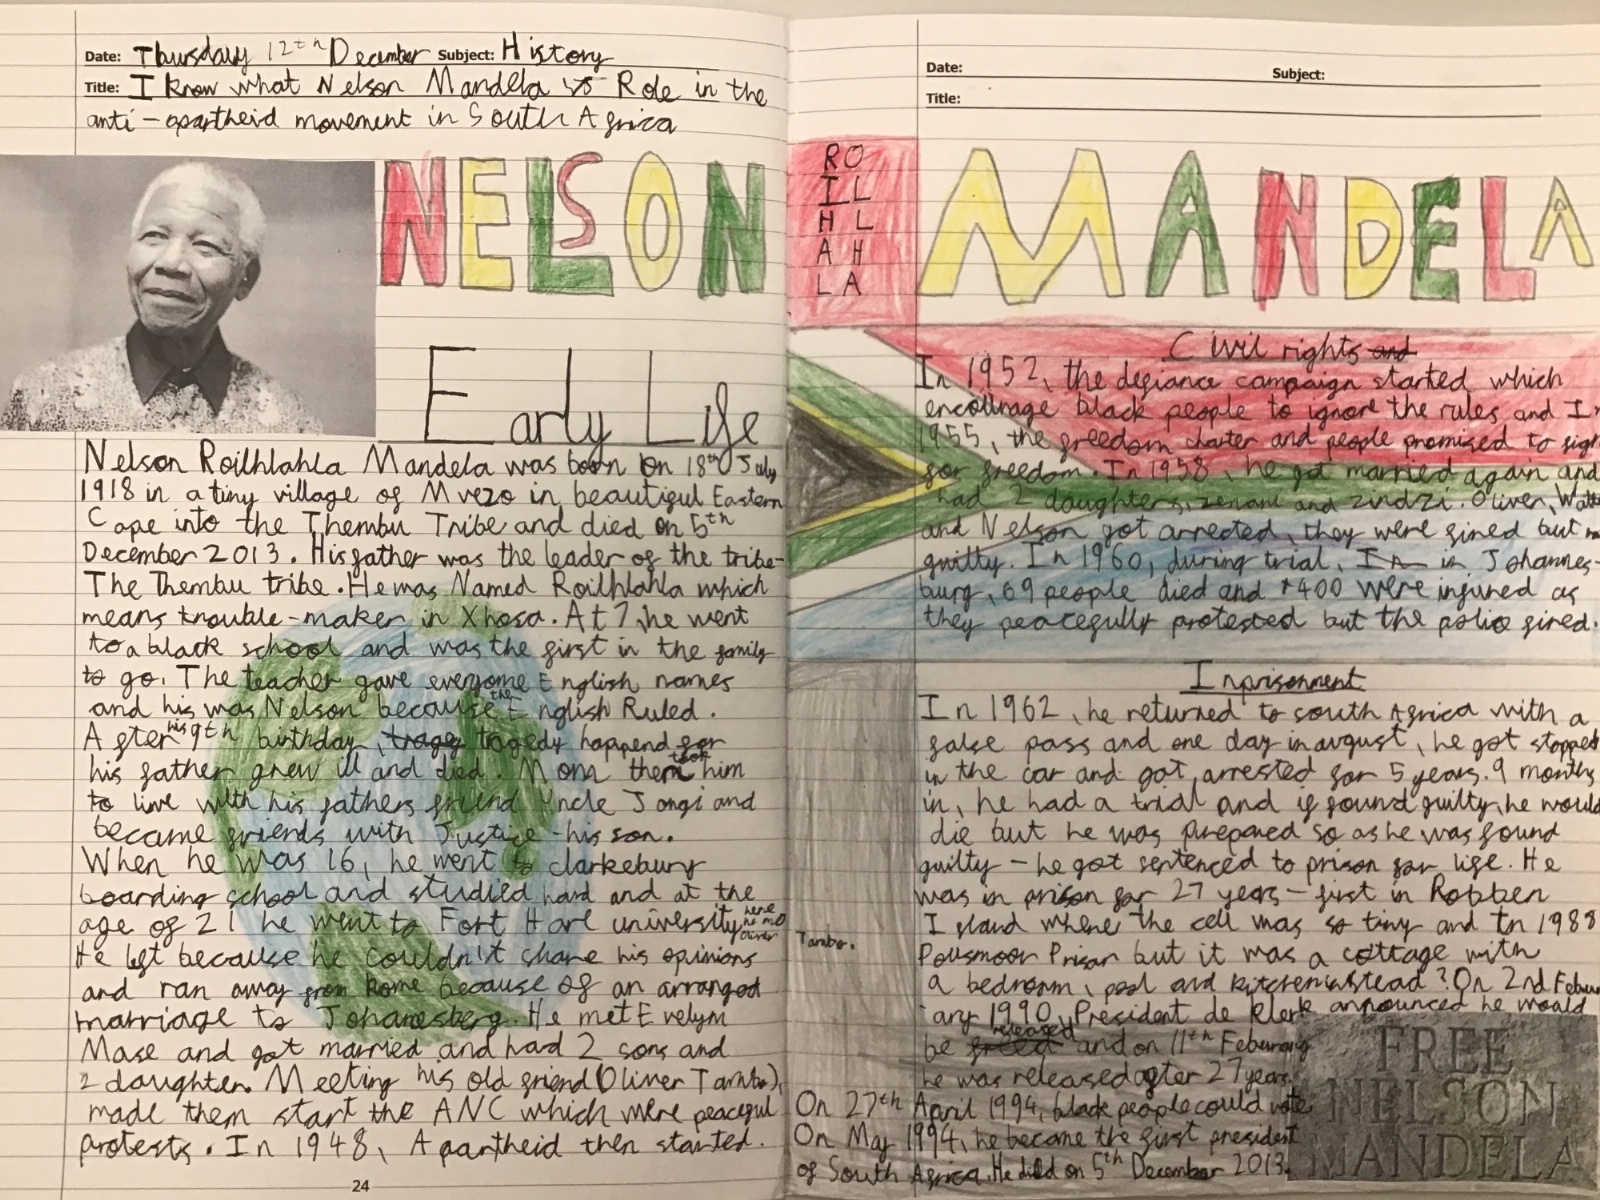 Date: Thursday 12th December Subject: History
Title: I know what Nelson Mandela's Role in the
anti-apartheid movement in South Africa
NELSON
Early Life
Nelson Roilhlahla Mandela was born on 18th July
1918 in a tiny village of Mvezo in beautiful Eastern
Cape into the Thembu Tribe and died on 5th
December 2013. His father was the leader of the tribe-
The Thembu tribe. He was Named Roilhlahla which
means trouble-maker in Xhosa. At 7, he went
to a black school and was the first in the family
to go. The teacher gave everyome English names
and his was Nelson because the English Ruled.
After his 9th birthday, tragey tragedy happend for
his father grew ill and died. Mom then took him
to live with his fathers friend Uncle Jongi and
became friends with Justice - his son.
When he was 16, he went to clarkebury
boarding school and studied hard and at the
age of 21 he went to Fort Hare university here he met Oliver Tambo.
He left because he couldn't share his opinions
and ran away from home because of an arranged
marriage to Johanesberg. He met Evelym
Mase and got married and had 2 sons and
2 daughter. Meeting his old friend (Oliver Tambo),
made them start the ANC which were peaceful
protests. In 1948, Apartheid then started.
24
Date: Subject:
Title:
RO
IL
HL
AH
LA
MANDELA
Civil rights and
In 1952, the defiance campaign started which
encourage black people to ignore the rules and In
1955, the freedom charter and people promised to figh
for freedom. In 1958, he got married again and
had 2 daughters, zenani and zindzi. Oliver, Walte
and Nelson got arrested, they were fined but
guilty. In 1960, during trial, In in Johannes-
burg, 69 people died and +400 were injured as
they peacefully protested but the police fired.
Inprisonment
In 1962, he returned to south Africa with a
false pass and one day in august, he got stopped
in the car and got arrested for 5 years. 9 months
in, he had a trial and if found guilty, he would
die but he was prepared so as he was found
guilty - he got sentenced to prison for life. He
was in prison for 27 years - first in Robben
Island where the cell was so tiny and In 1988
Pollsmoor Prison but it was a cottage with
a bedroom, pool and kitchen instead? On 2nd Febru
ary 1990, President de Klerk announced he would
be freed released and on 11th Feburary
he was released after 27 years.
On 27th April 1994, black people could vote
On May 1994, he became the first president
of South Africa. He died on 5th December 2013.
FREE
NELSON
MANDELA